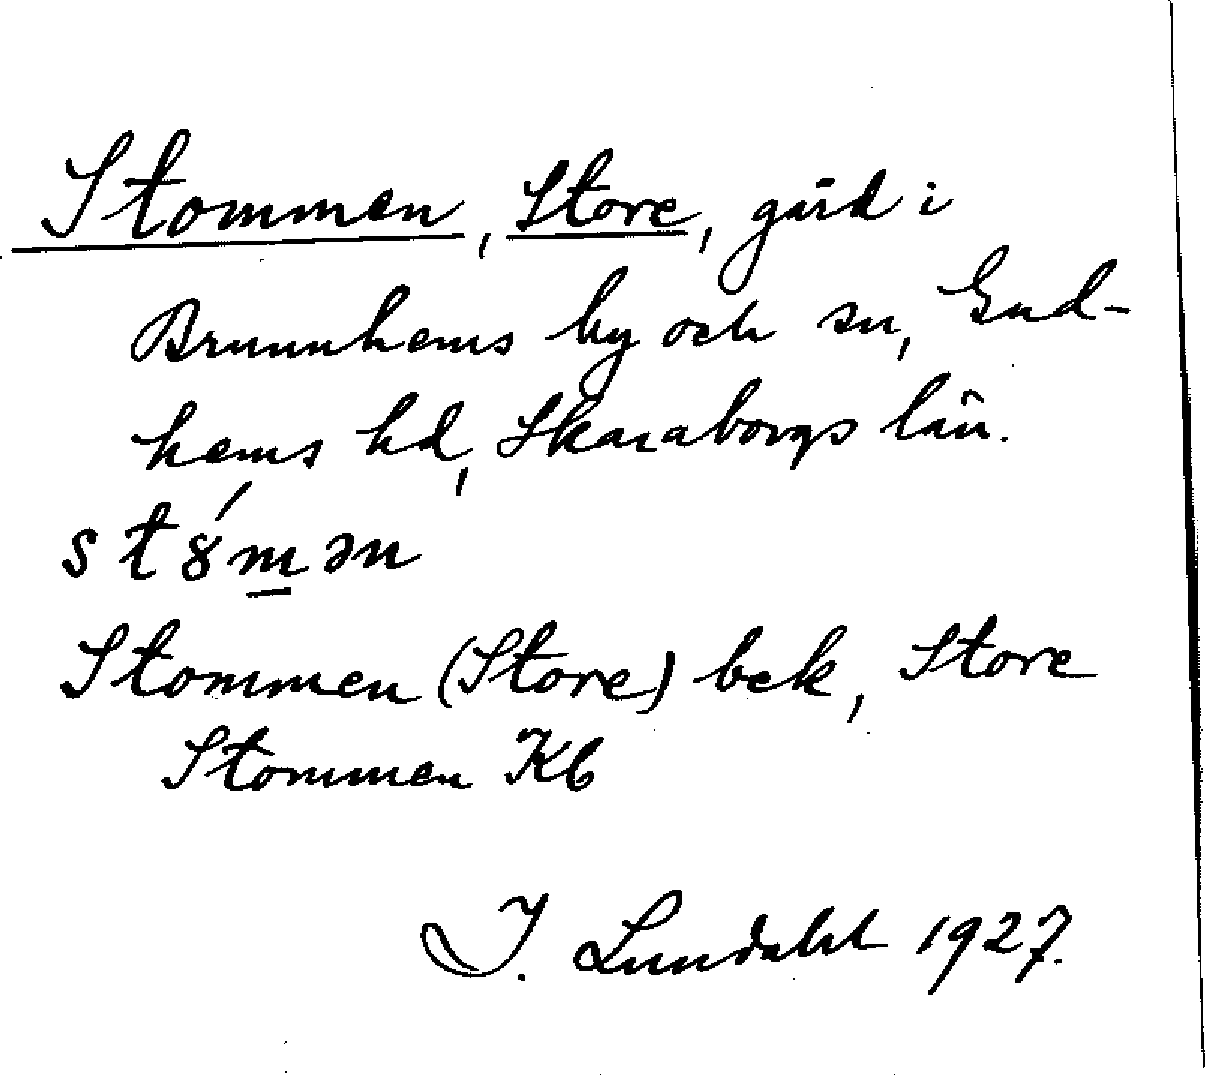 Stommen, Store, gård i
Brunnhems by och sn, Gud-
hems hd, Skaraborgs län.
st8́m̲ən
Stommen (Store) bek, Store
Stommen Kb
I. Lundahl 1927.